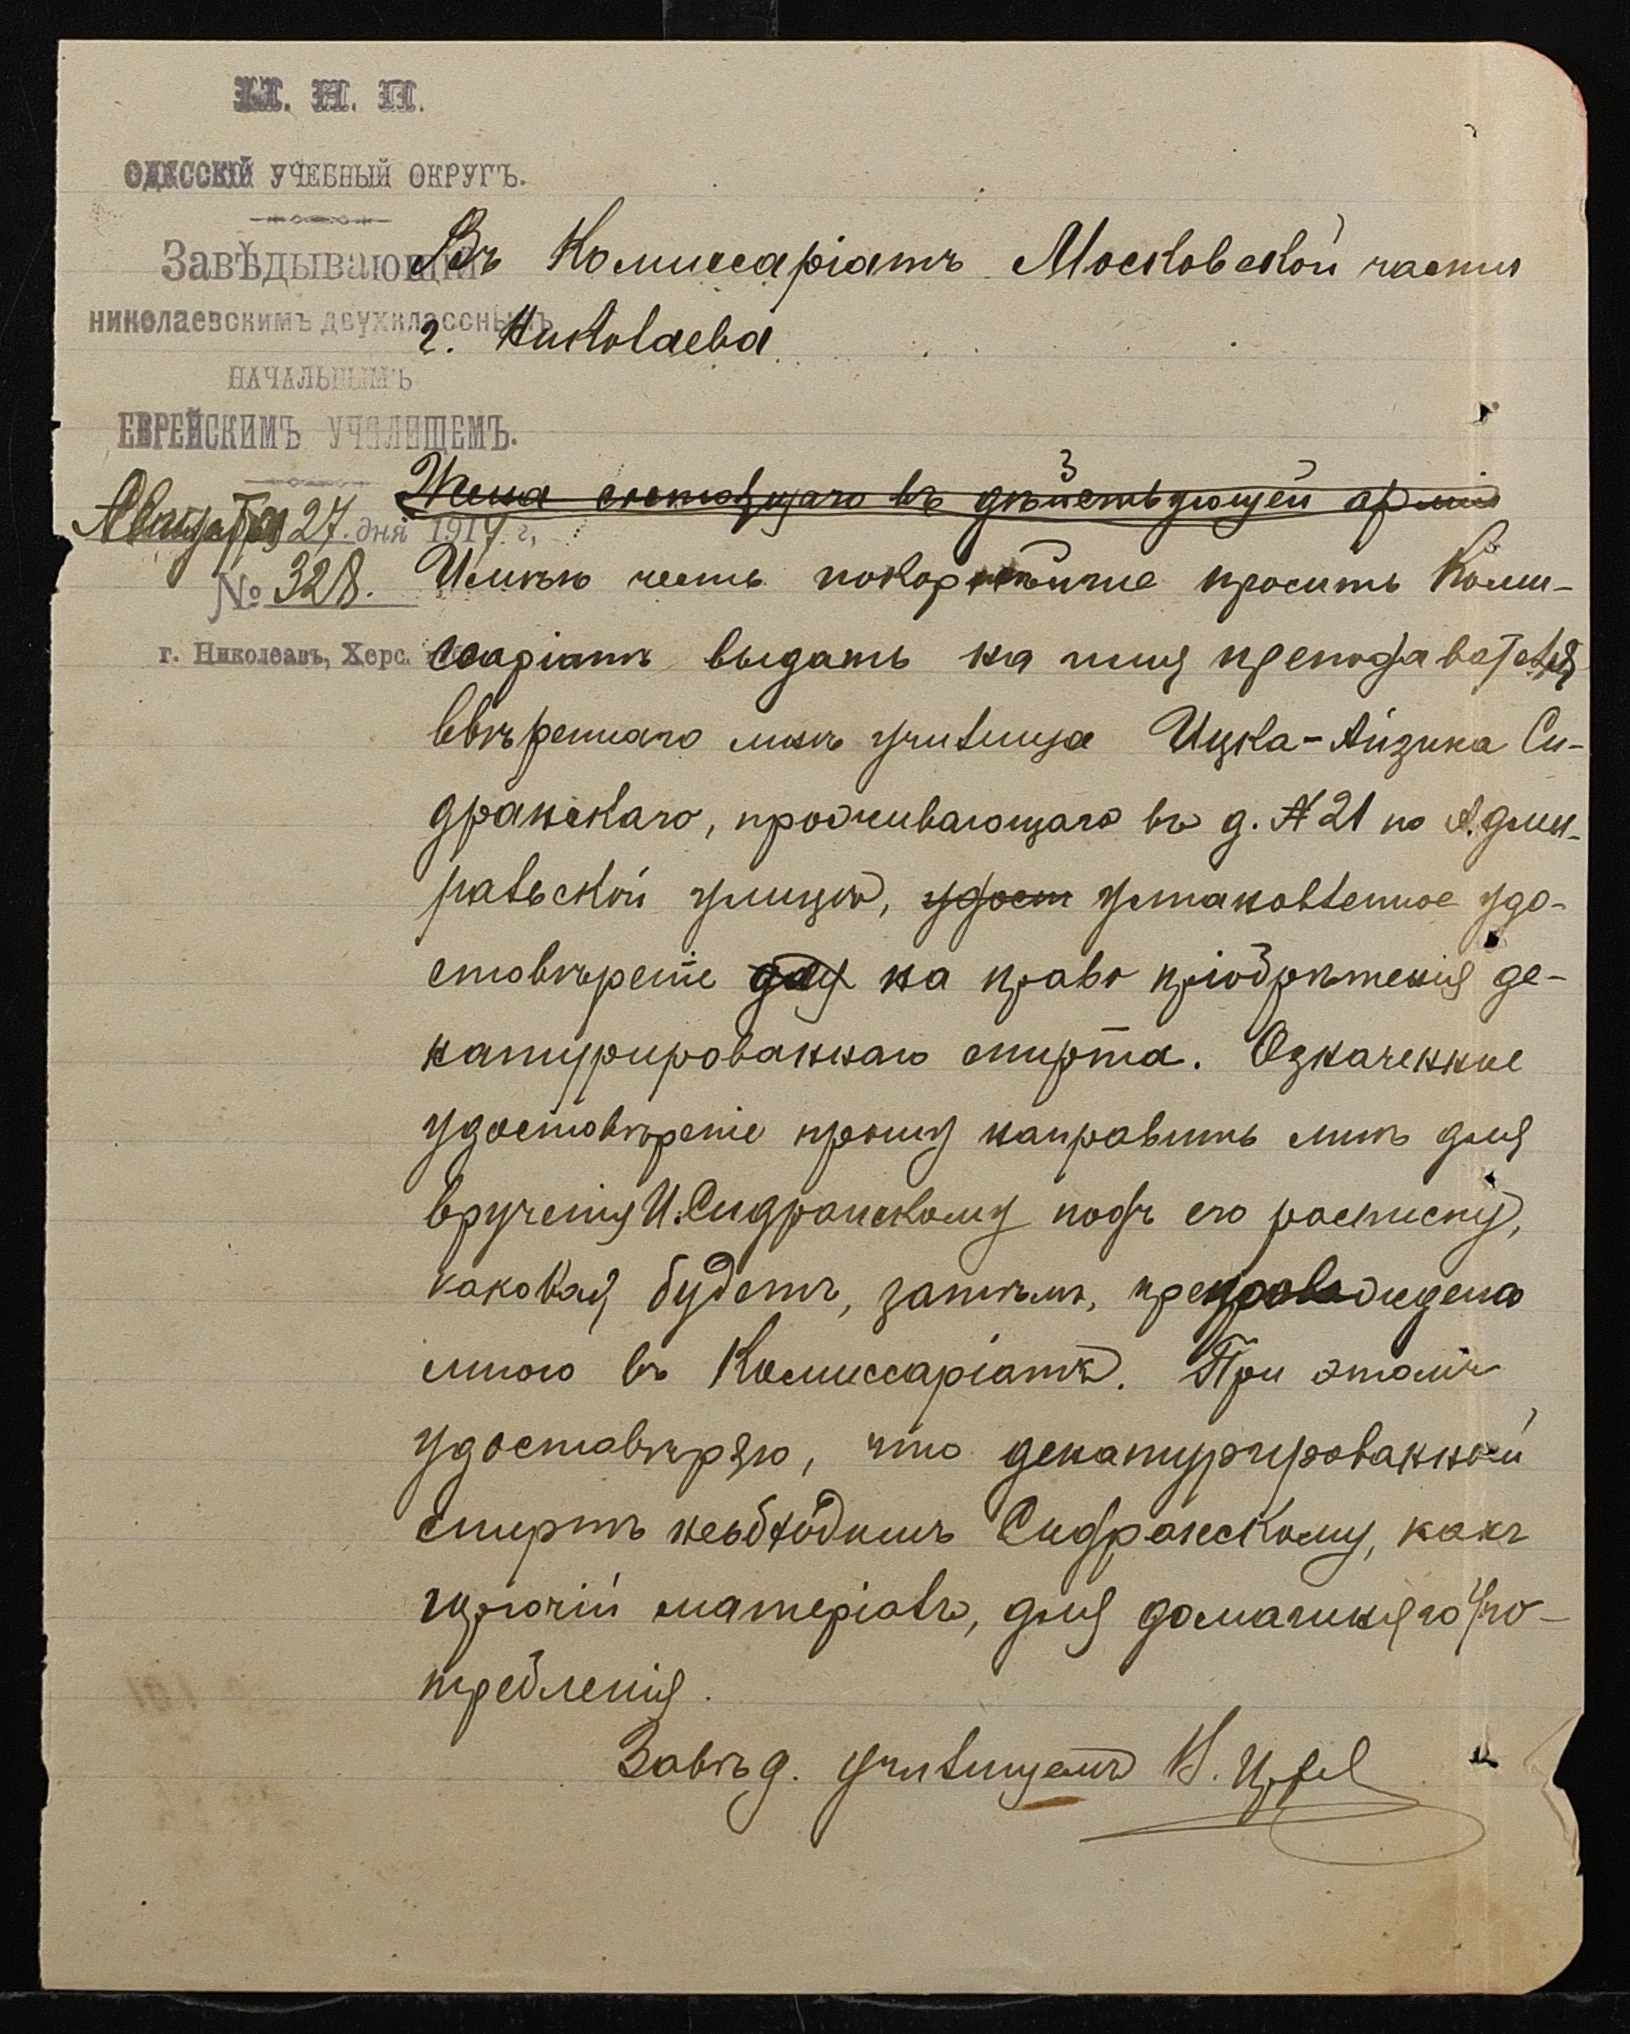 М. Н. П.
ОДЕССКІЙ УЧЕБНЫЙ ОКРУГЪ.
Завѣдывающій
НИКОЛАЕВСКИМЪ ДВУХКЛАССНЫМЪ
НАЧАЛЬНЫМЪ
ЕВРЕЙСКИМЪ УЧИЛИЩЕМЪ.
Августа 27 дня 1917 г.
№ 328.
г. Николаевъ, Херс.
Въ Комиссаріатъ Московской части
г. Николаева
Жена состоящаго въ дѣйствующей арміи
Имѣю честь покорнѣйше просить Коми-
ссаріатъ выдать на имя преподавателя
ввѣреннаго мнѣ училища Ицка-Айзика Си-
дранскаго, проживающаго въ д. № 21 по Адми-
ральской улицѣ, удост установленное удо-
стовѣреніе для на право пріобрѣтенія де-
натурированнаго спирта. Означенное
удостовѣреніе прошу направить мнѣ для
врученія И. Сидранскому подъ его расписку,
каковая будетъ, затѣмъ, препровождена
мною въ Комиссаріатъ. При этомъ
удостовѣряю, что денатурированный
спиртъ необходимъ Сидранскому, какъ
горючій матеріалъ, для домашняго упо-
требленія.
Завѣд. училищемъ